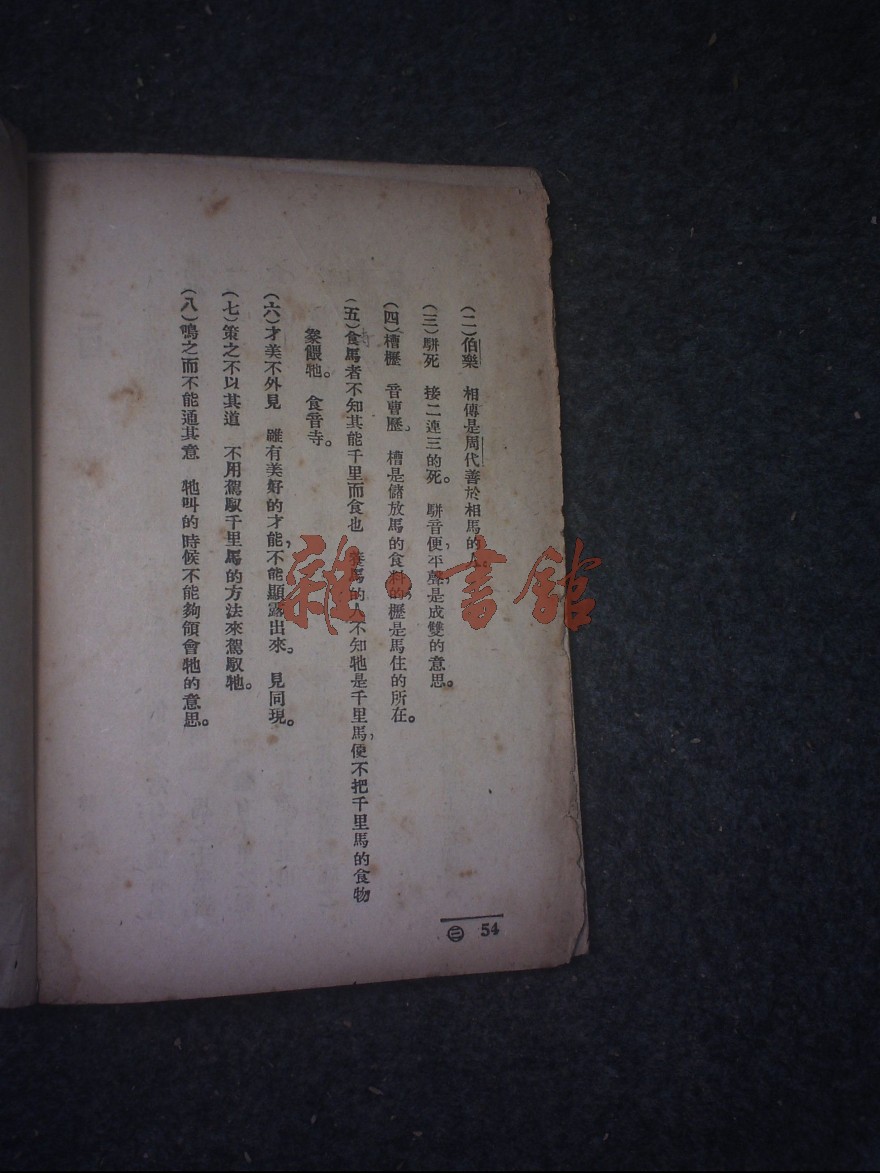 (二)伯樂　相傳是周代善於相馬的人。
(三)駢死　接二連三的死。　駢音便平聲,是成雙的意思。
(四)槽櫪　音曹歷。　槽是儲放馬的食料的,櫪是馬住的所在。
(五)食馬者不知其能千里而食也　養馬的人不知牠是千里馬,便不把千里馬的食物
來餵牠。　食音寺。
(六)才美不外見　雖有美好的才能,不能顯露出來。　見同現。
(七)策之不以其道　不用駕馭千里馬的方法來駕馭牠。
(八)鳴之而不能通其意　牠叫的時候不能夠領會牠的意思。
㊁ 54
雜·書館